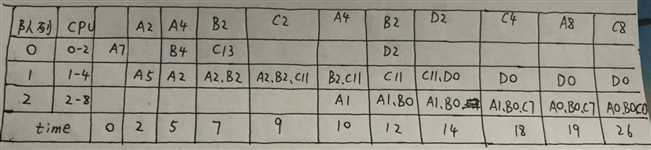 队列 CPU A2 A4 B2 C2 A4 B2 D2 C4 A8 C8
0 0-2 A7 B4 C13 D2
1 1-4 A5 A2 A2,B2 A2,B2,C11 B2,C11 C11 C11,D0 D0 D0 D0
2 2-8 A1 A1,B0 A1,B0 A1,B0,C7 A0,B0,C7 A0,B0,C0
time 0 2 5 7 9 10 12 14 18 19 26